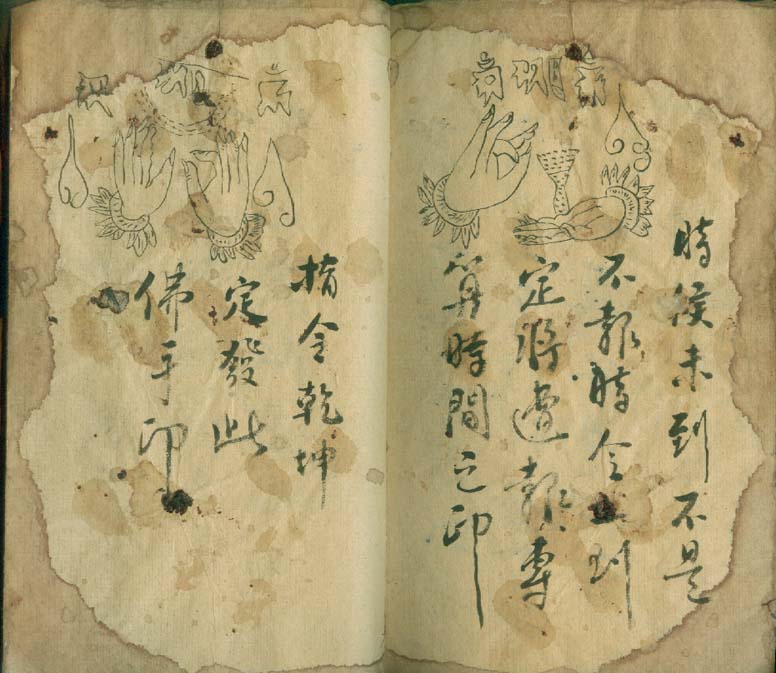 時候未到不是
不報時令一到
定將遭報專
算時間之印
指令乾坤
定發此
佛手印